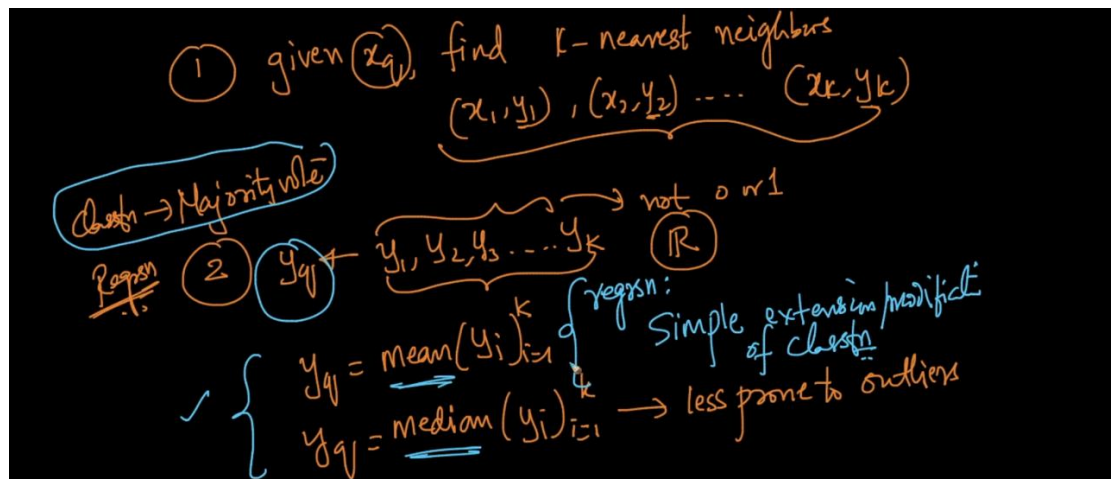 1 given xq, find K-nearest neighbors
(x1, y1), (x2, y2) .... (xk, yk)
Classfn → Majority vote
not 0 or 1
Regrsn 2 yq ← y1, y2, y3 .... yk ℝ
regrsn:
Simple extension/modificati
of classfn
yq = mean(yi)i=1 k
yq = median(yi)i=1 k → less prone to outliers